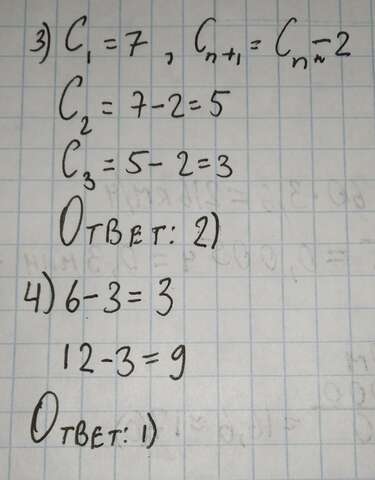 3) C₁ = 7 , Cₙ₊₁ = Cₙ - 2
C₂ = 7 - 2 = 5
C₃ = 5 - 2 = 3
Ответ: 2)
4) 6 - 3 = 3
12 - 3 = 9
Ответ: 1)